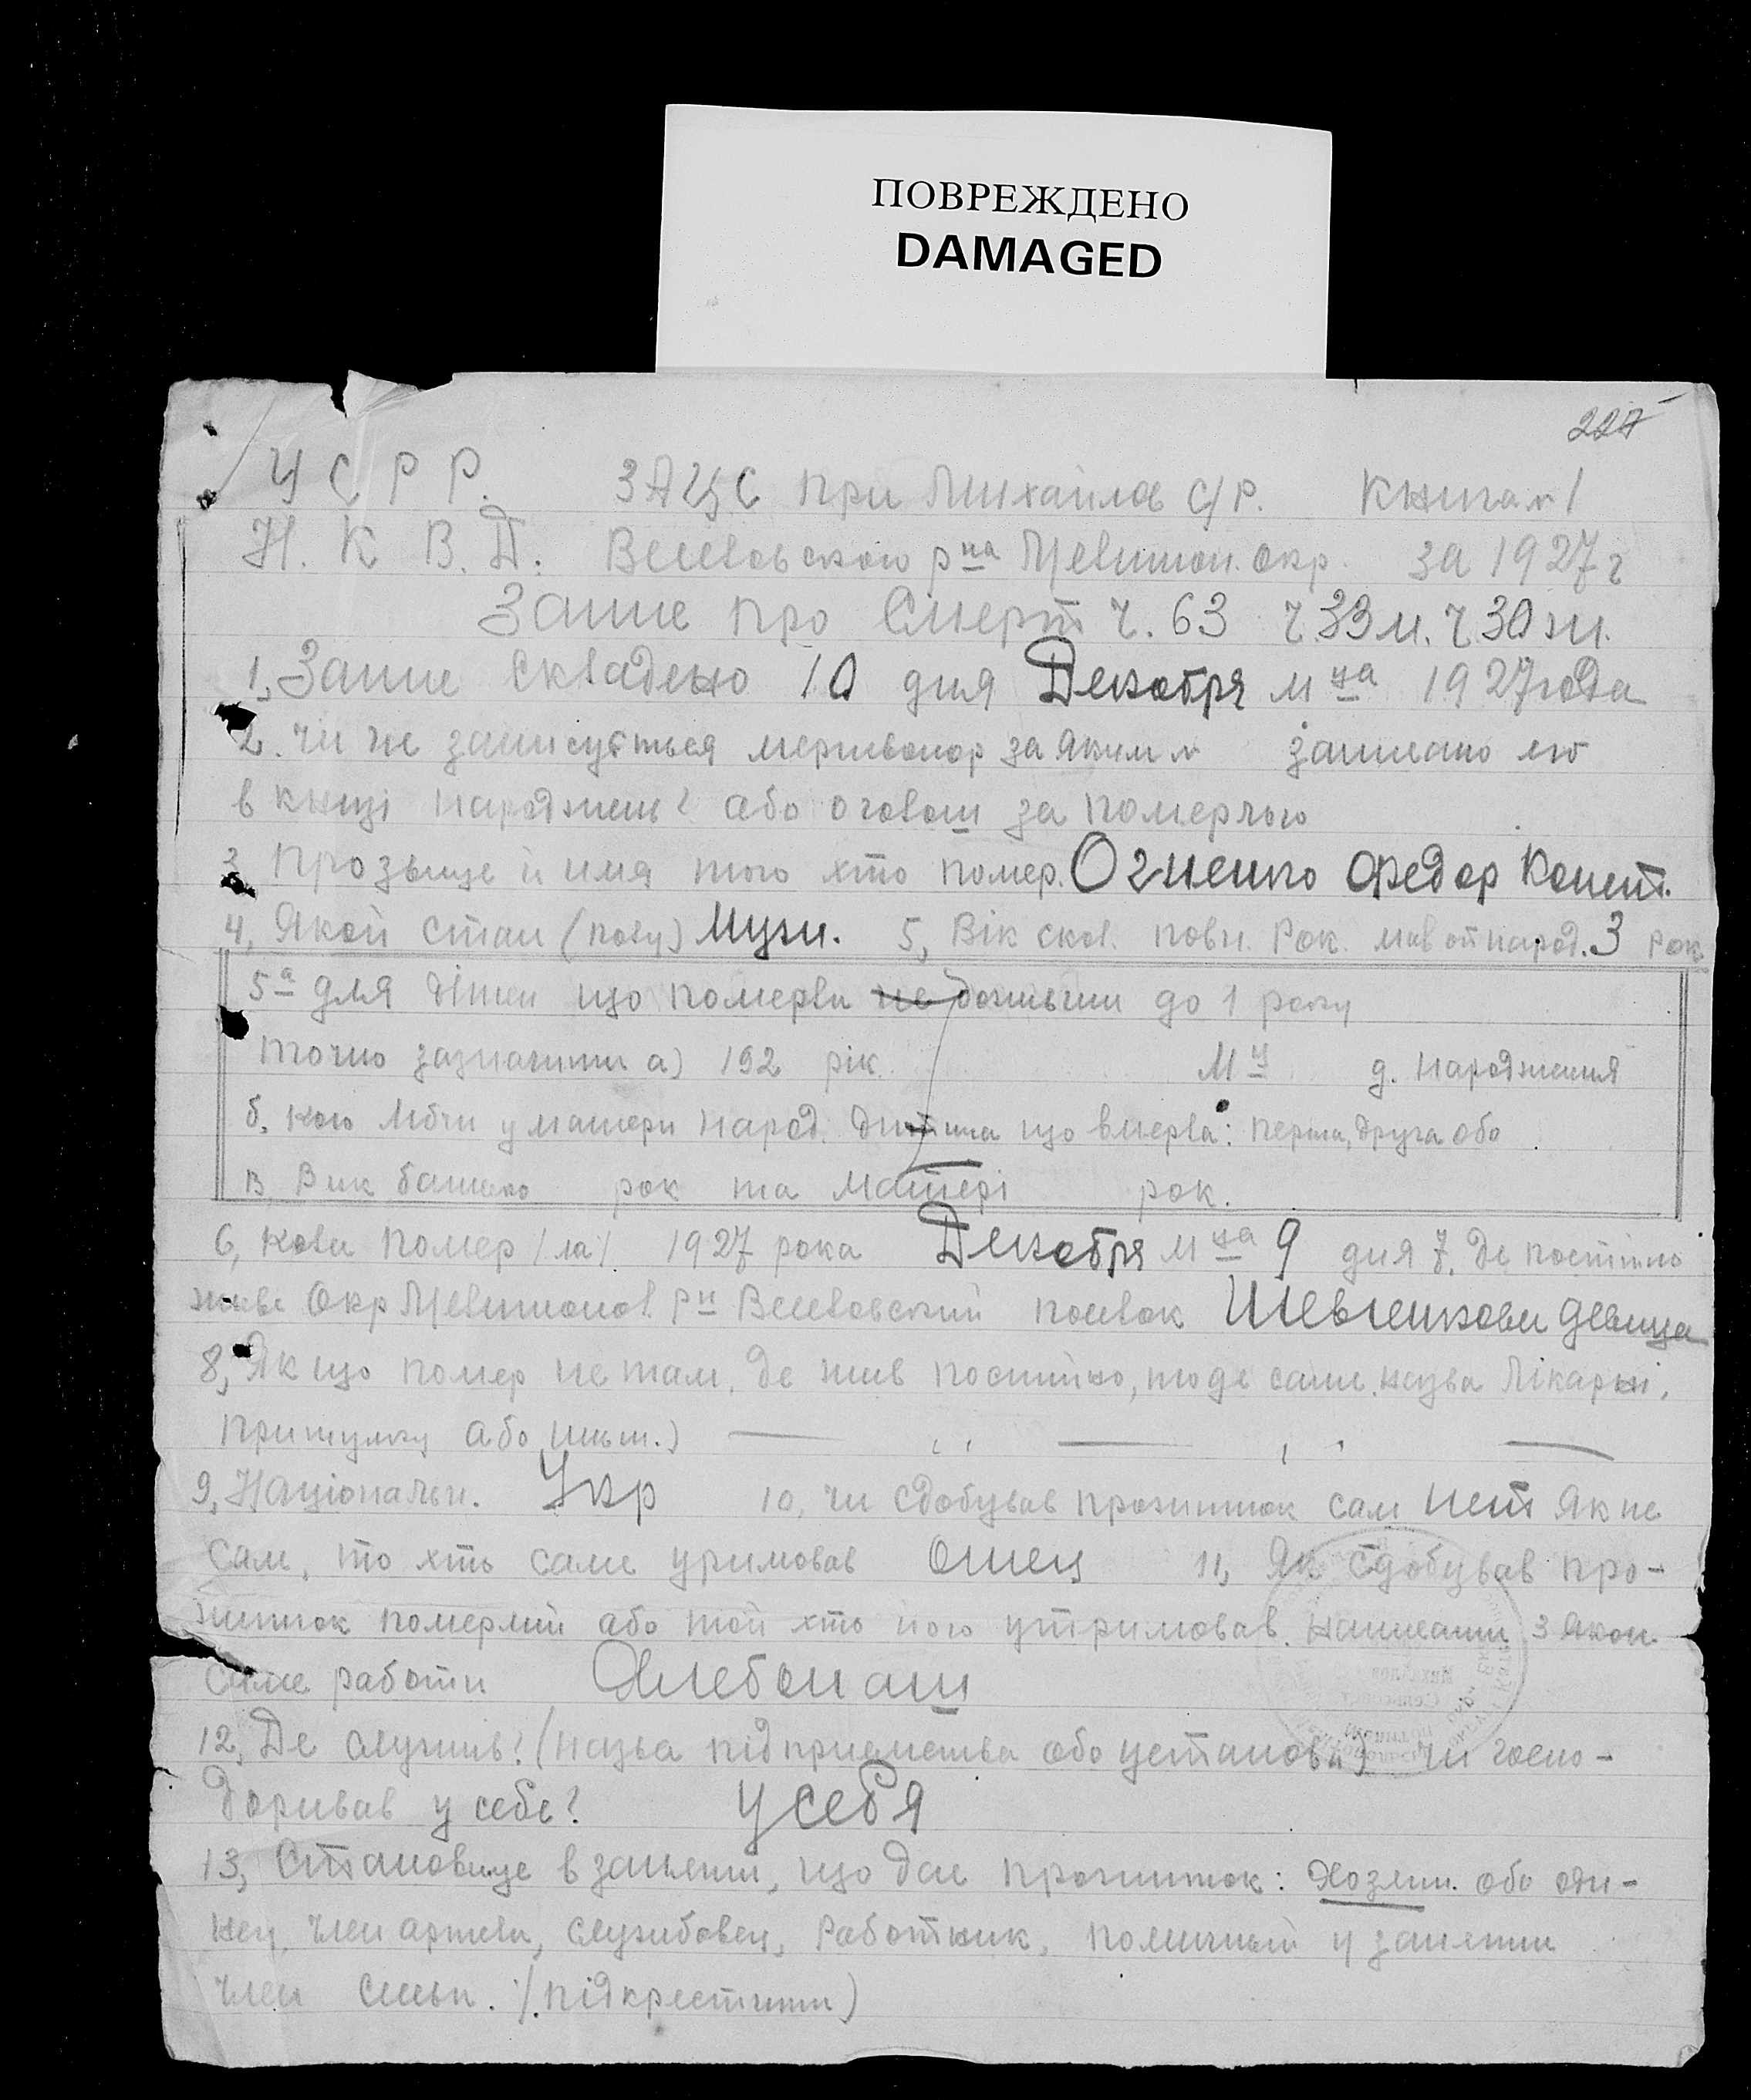 ПОВРЕЖДЕНО
DAMAGED
227
У С Р Р. ЗАЦС при Михайлов С/Р. Книга № 1
Н. К. В. Д. Веселовского р-на Мелитоп. окр. за 1927 г
Запис про Смерт ч. 63 ч 33 м. ч 30 ж.
1, Запис складено 10 дня Декабря м-ца 1927 года
2. чи не записується мертвонар за яким № записано его
в книзі народжень? або оголош за померлого
3 Прозвище й имя того хто помер. Огненко Федор Конст.
4, Якой стат (полу) Муж. 5, Вік скол. повн. Рок. мав от народ. 3 рок
5а для дітей що померли не доживши до 1 року
точно зазначити а) 192 рік. М-ц д. народження
б. кого лічби у матери народ. дитина що вмерла: перша, друга або
в. Вик батько рок та Матері рок.
6, коли помер /ла/ 1927 рока Декабря м-ца 9 дня 7, де постійно
живе Окр Мелитопол. р-н Веселовский поселок
8, Якщо помер не там, де жив постійно, то де саме. назва Лікарні,
притулку або инш.)
9, Національн. Укр 10, чи сдобував прожиток сам нет Як не
сам, то хто саме уримовав Отец 11, Як сдобував про-
житок померлий або той хто його утримовав. Написати з якои
саме работи Хлебопаш
12, Де служив? (назва підприємства або установи) чи госпо-
даривав у себе? у себя
13, Становище в занятті, що дае прожиток: Хозяин. або оди-
нец, член артели, службовец, работник, помічний у занятии
член семьи. /підкрестити)